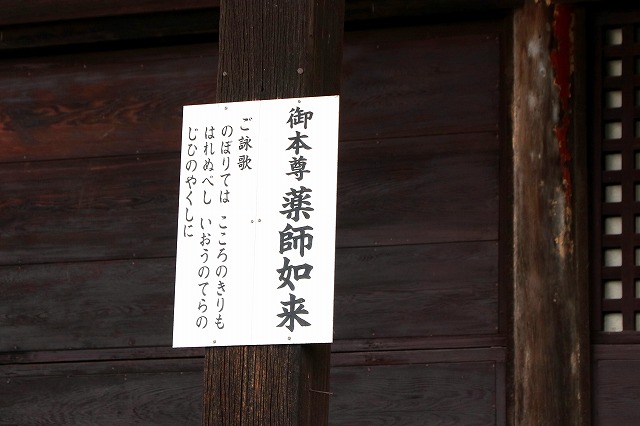 御本尊薬師如来
ご詠歌
のぼりては　こころのきりも
はれぬべし　いおうのてらの
じひのやくしに